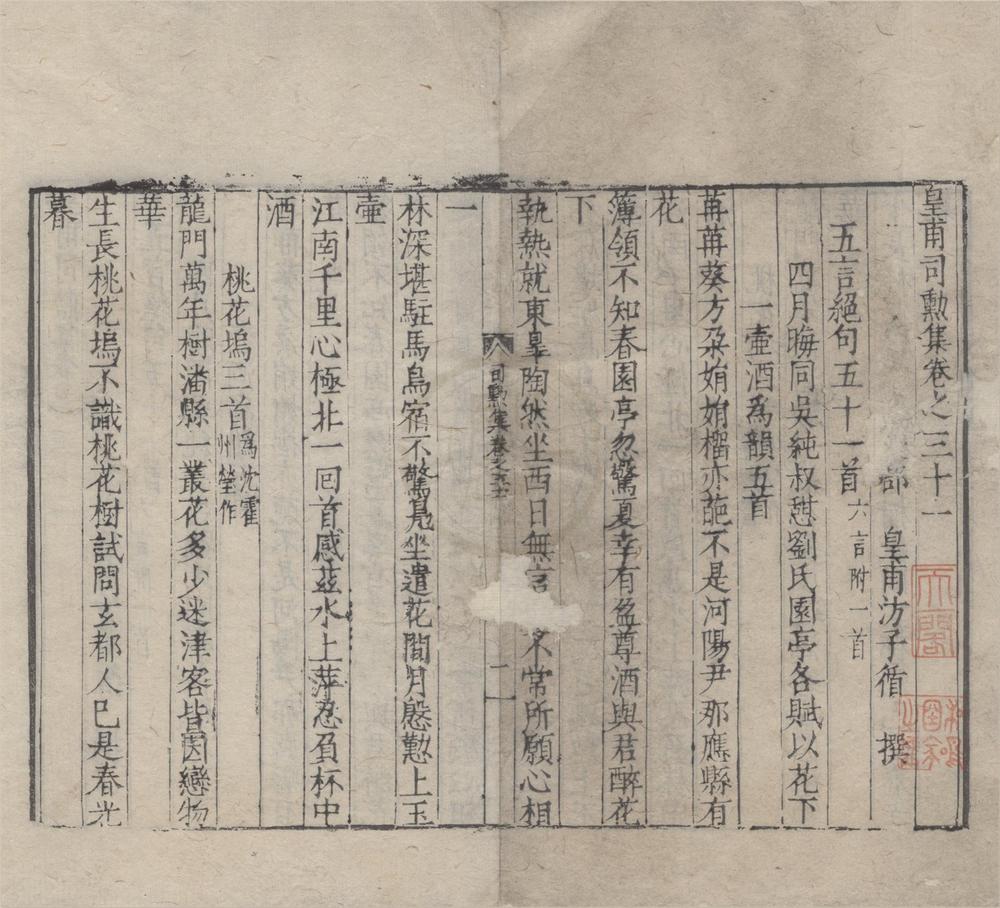 皇甫司勲集卷之三十一
郡 皇甫汸子循 撰
五言絕句五十一首 六言附一首
四月晦同吳純叔憇劉氏園亭各賦以花下
一壷酒爲韻五首
苒苒葵方朶娟娟榴亦葩不是河陽尹那應縣有
花
簿領不知春園亭忽驚夏幸有盈尊酒與君醉花
下
執熱就東皋陶然坐西日無言 不常所願心相
一
司勲集卷之三十一
一
林深堪駐馬鳥宿不驚鳬坐遣花間月慇懃上玉
壷
江南千里心極北一回首感茲水上萍忍負杯中
酒
桃花塢三首 爲沈霍州瑩作
龍門萬年樹潘縣一叢花多少迷津客皆因戀物
華
生長桃花塢不識桃花樹試問玄都人已是春光
暮